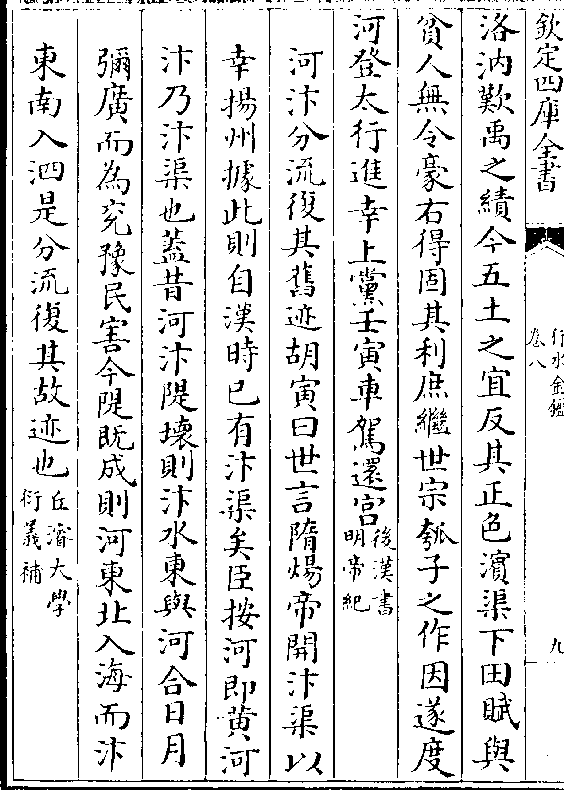 欽定四庫全書
行水金鑑
卷八
九
洛汭歎禹之績今五土之宜反其正色濱渠下田賦與
貧人無令豪右得固其利庶繼世宗瓠子之作因遂度
河登太行進幸上黨壬寅車駕還宮後漢書明帝紀
河汴分流復其舊迹胡寅曰世言隋煬帝開汴渠以
幸揚州據此則自漢時已有汴渠矣臣按河即黄河
汴乃汴渠也蓋昔河汴隄壞則汴水東與河合日月
彌廣而為兖豫民害今隄既成則河東北入海而汴
東南入泗是分流復其故迹也丘濬大學衍義補